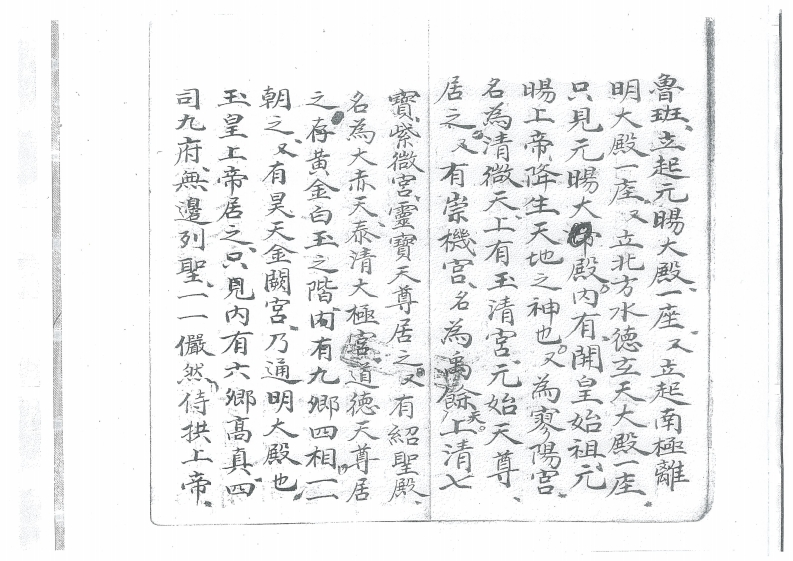 魯班、立起元暘大殿一座、又立起南極離
明大殿一座、又立北方水德玄天大殿一座
只見元暘大殿內有開皇始祖元
暘上帝、降生天地之神也。又為寥陽宮、
名為清微天、上有玉清宮、元始天尊
居之。又有崇機宮、名為禹餘天。上清七
寶紫微宮、靈寶天尊居之。又有紹聖殿、
名為大赤天、泰清大極宮、道德天尊居
之、存黃金白玉之階、內有九鄉四相、一一
朝之、又有昊天金闕宮、乃通明大殿也
玉皇上帝居之、只見內有六鄉高真、四
司九府、無邊列聖、一一儼然、侍拱上帝、